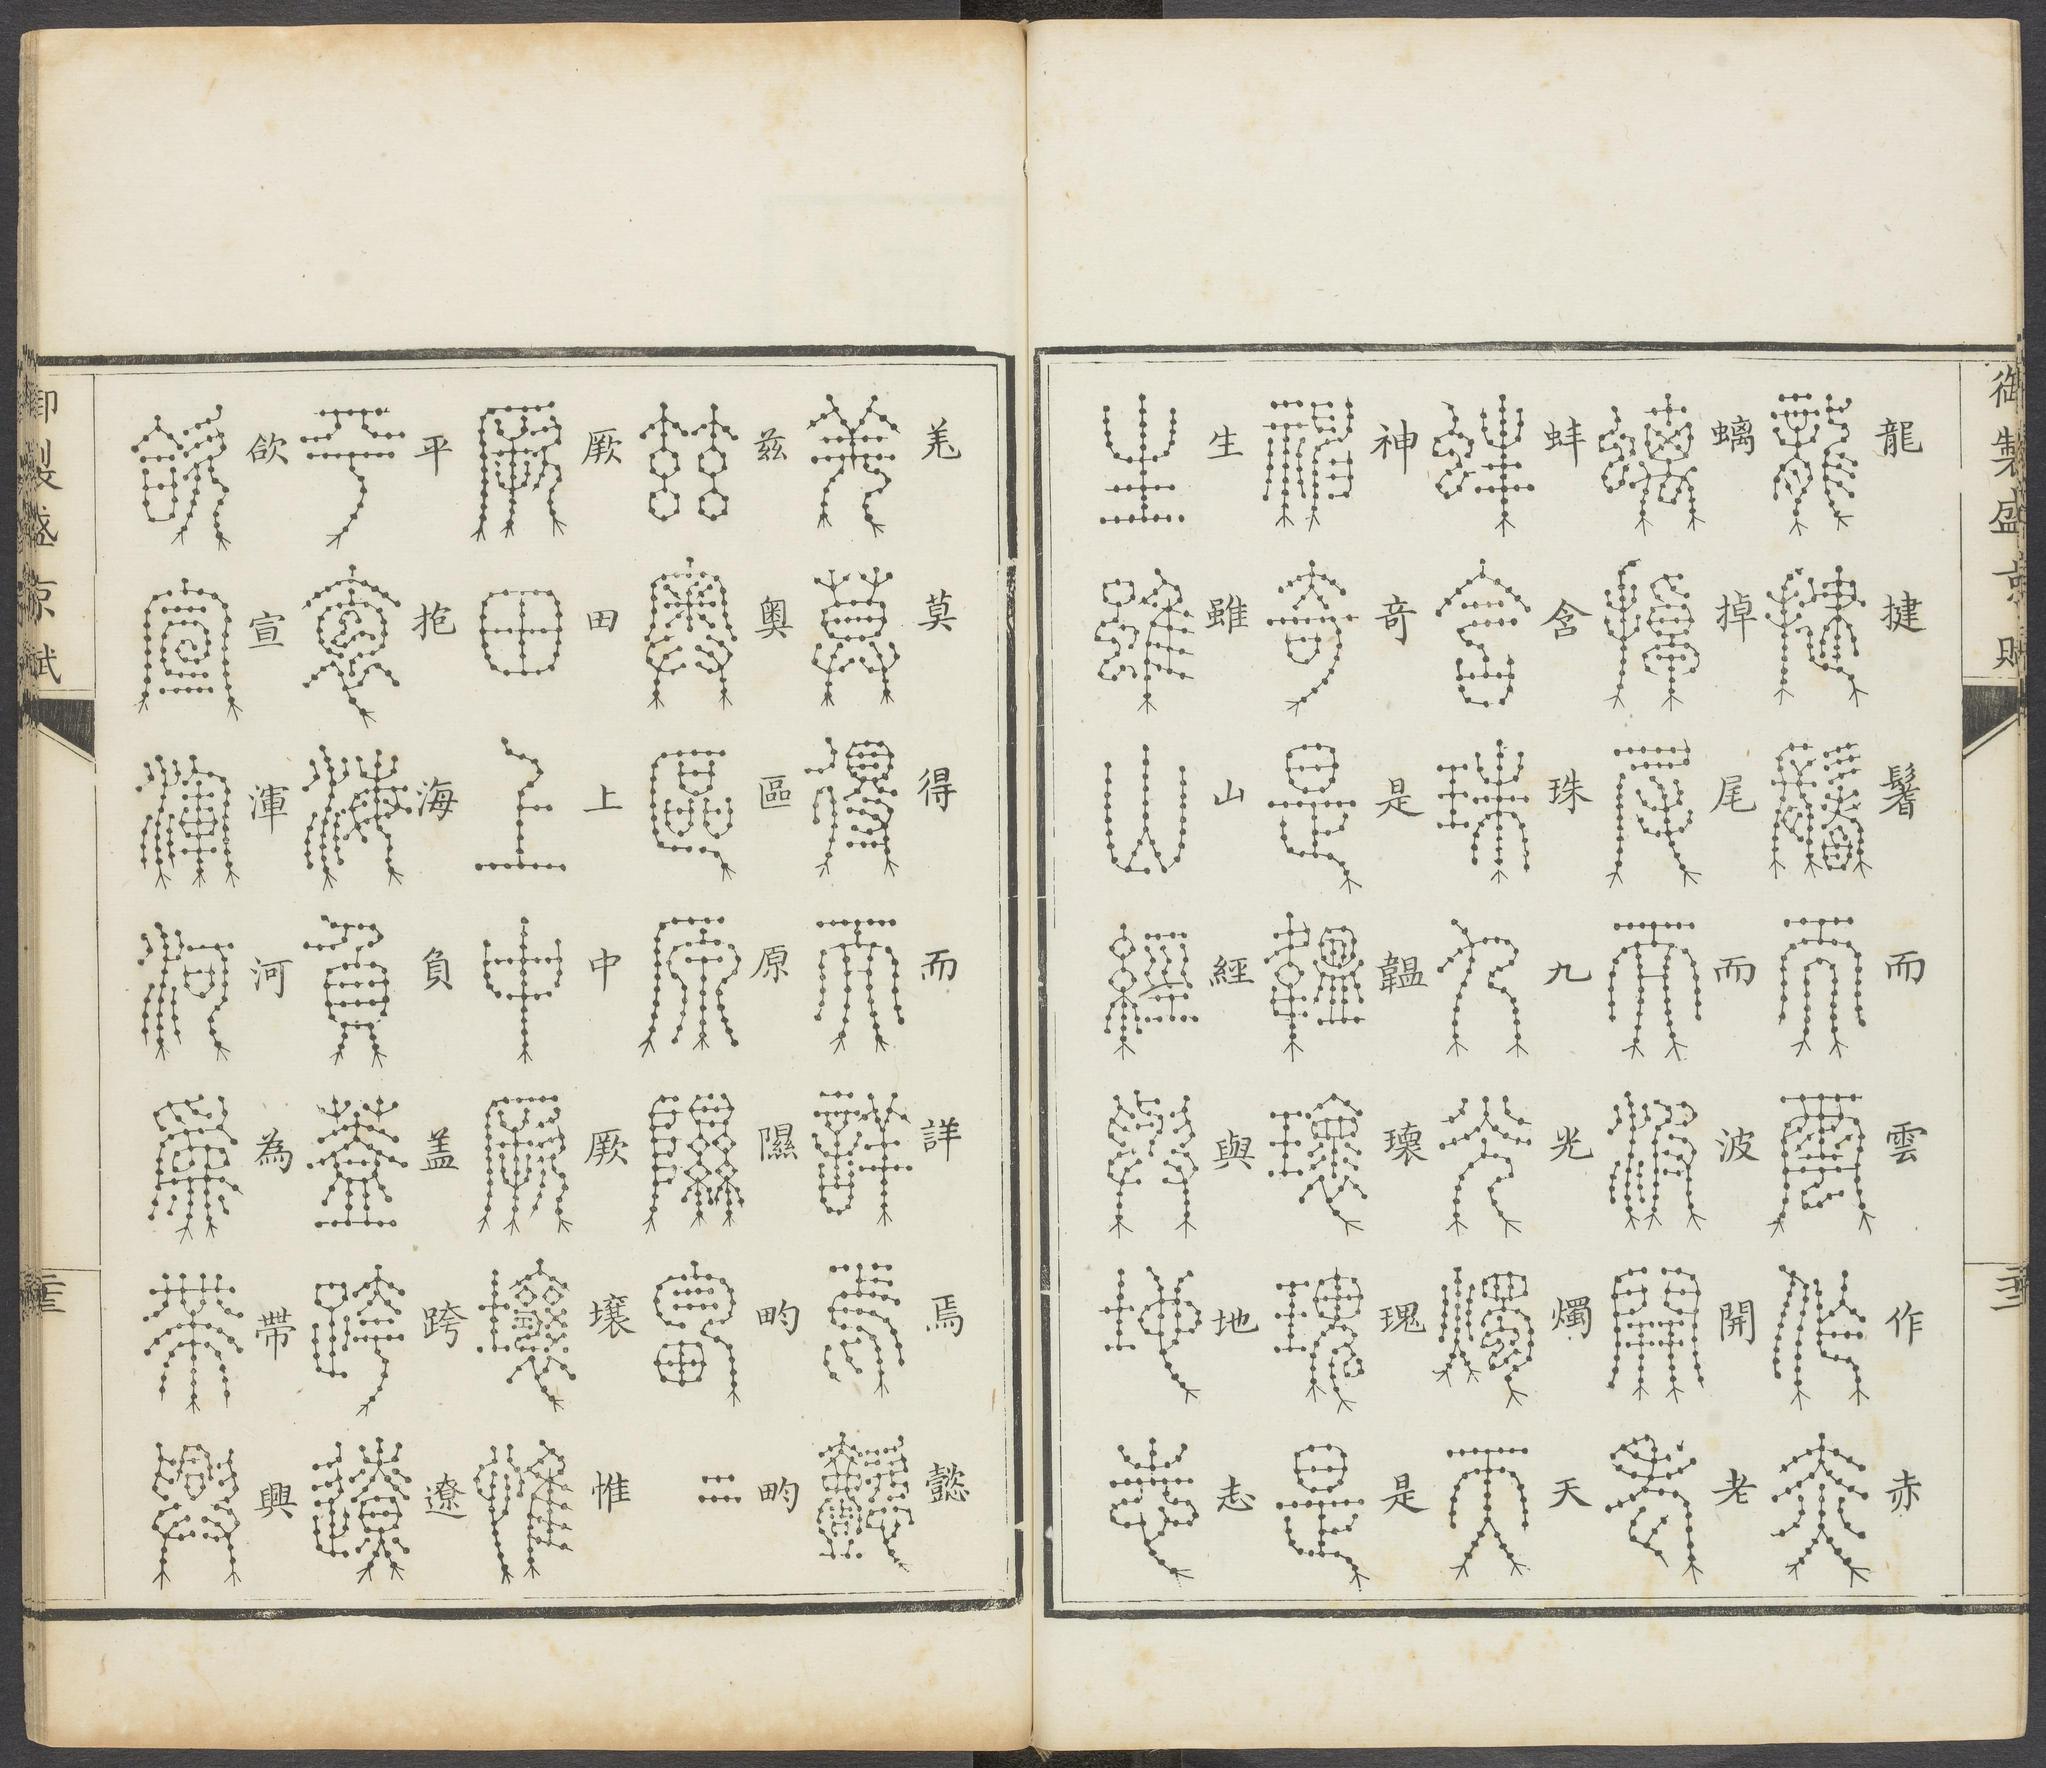 御製盛京賦
二十二
龍揵鬐而雲作赤
螭掉尾而波開老
蚌含珠九光燭天
神奇是韞瓌瑰是
生雖山經與地志
羌莫得而詳焉懿
茲奧區原隰畇畇
厥田上中厥壤惟
平抱海負盖跨遼
欱宣渾河為帶興
御製盛京賦